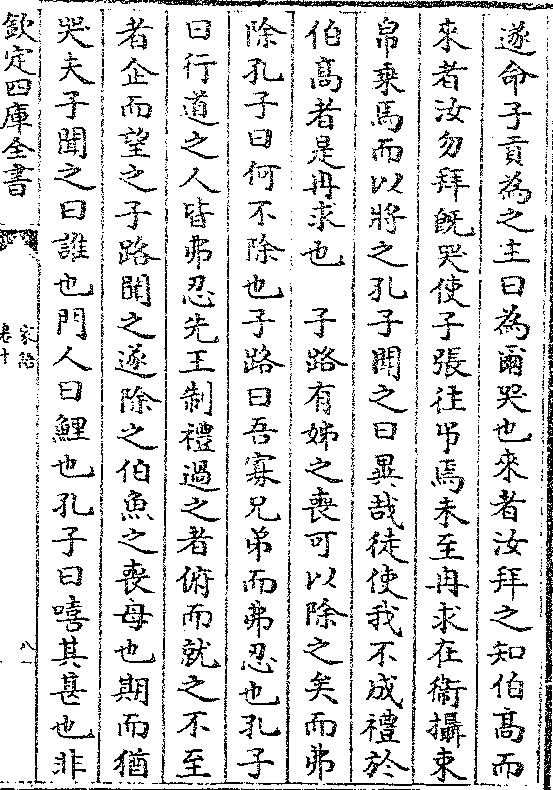 遂命子貢為之主曰為爾哭也來者汝拜之知伯髙而
來者汝勿拜既哭使子張往弔焉未至冉求在衞攝束
帛乗馬而以將之孔子聞之曰異哉徒使我不成禮於
伯髙者是冉求也　子路有姊之喪可以除之矣而弗
除孔子曰何不除也子路曰吾寡兄弟而弗忍也孔子
曰行道之人皆弗忍先王制禮過之者俯而就之不至
者企而望之子路聞之遂除之伯魚之喪母也期而猶
哭夫子聞之曰誰也門人曰鯉也孔子曰嘻其甚也非
欽定四庫全書
家語
卷十
八